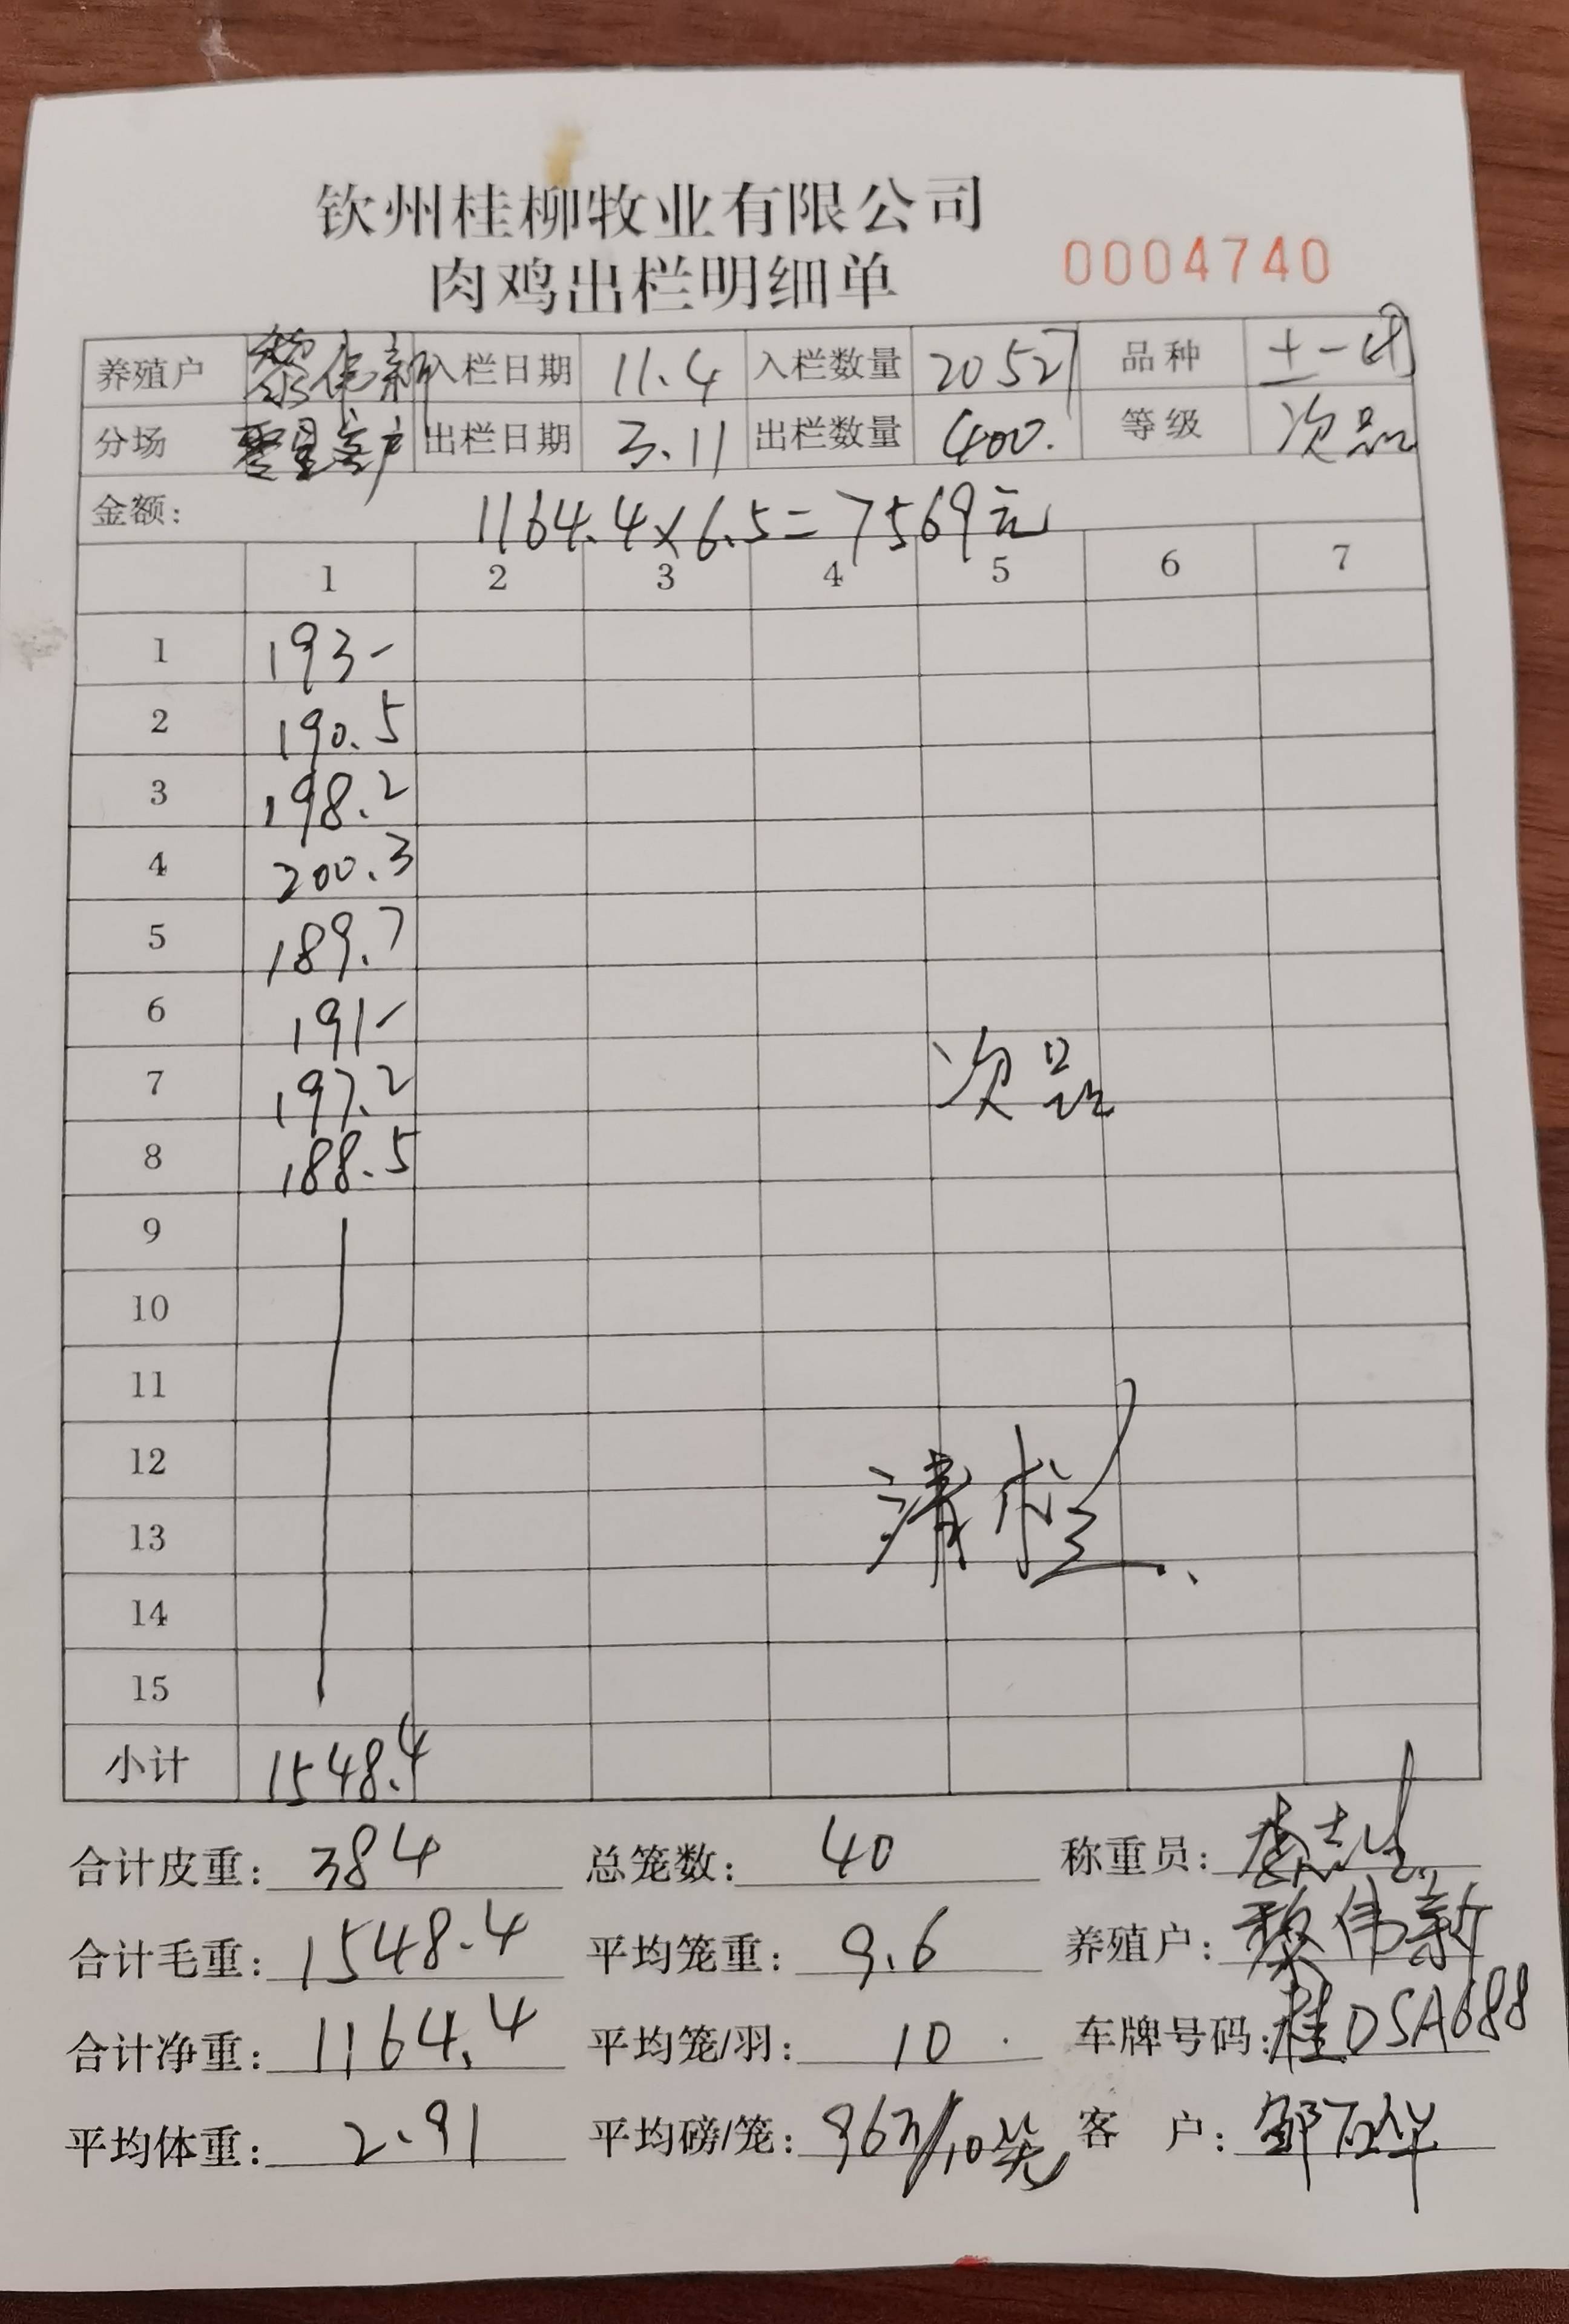 钦州桂柳牧业有限公司
肉鸡出栏明细单 0004740
养殖户 黎伟新 入栏日期 11.4 入栏数量 20527 品种 土一
分场 零星客户 出栏日期 3.11 出栏数量 400. 等级 次品
金额: 1164.4×6.5=7569元
1 2 3 4 5 6 7
1 193-
2 190.5
3 198.2
4 200.3
5 189.7
6 191-
7 197.2 次品
8 188.5
9
10
11
12
13 清栏
14
15
小计 1548.4
合计皮重: 384 总笼数: 40 称重员:
合计毛重: 1548.4 平均笼重: 9.6 养殖户: 黎伟新
合计净重: 1164.4 平均笼/羽: 10 车牌号码: 桂DSA688
平均体重: 2.91 平均磅/笼: 96斤/10笼 客户: 邹